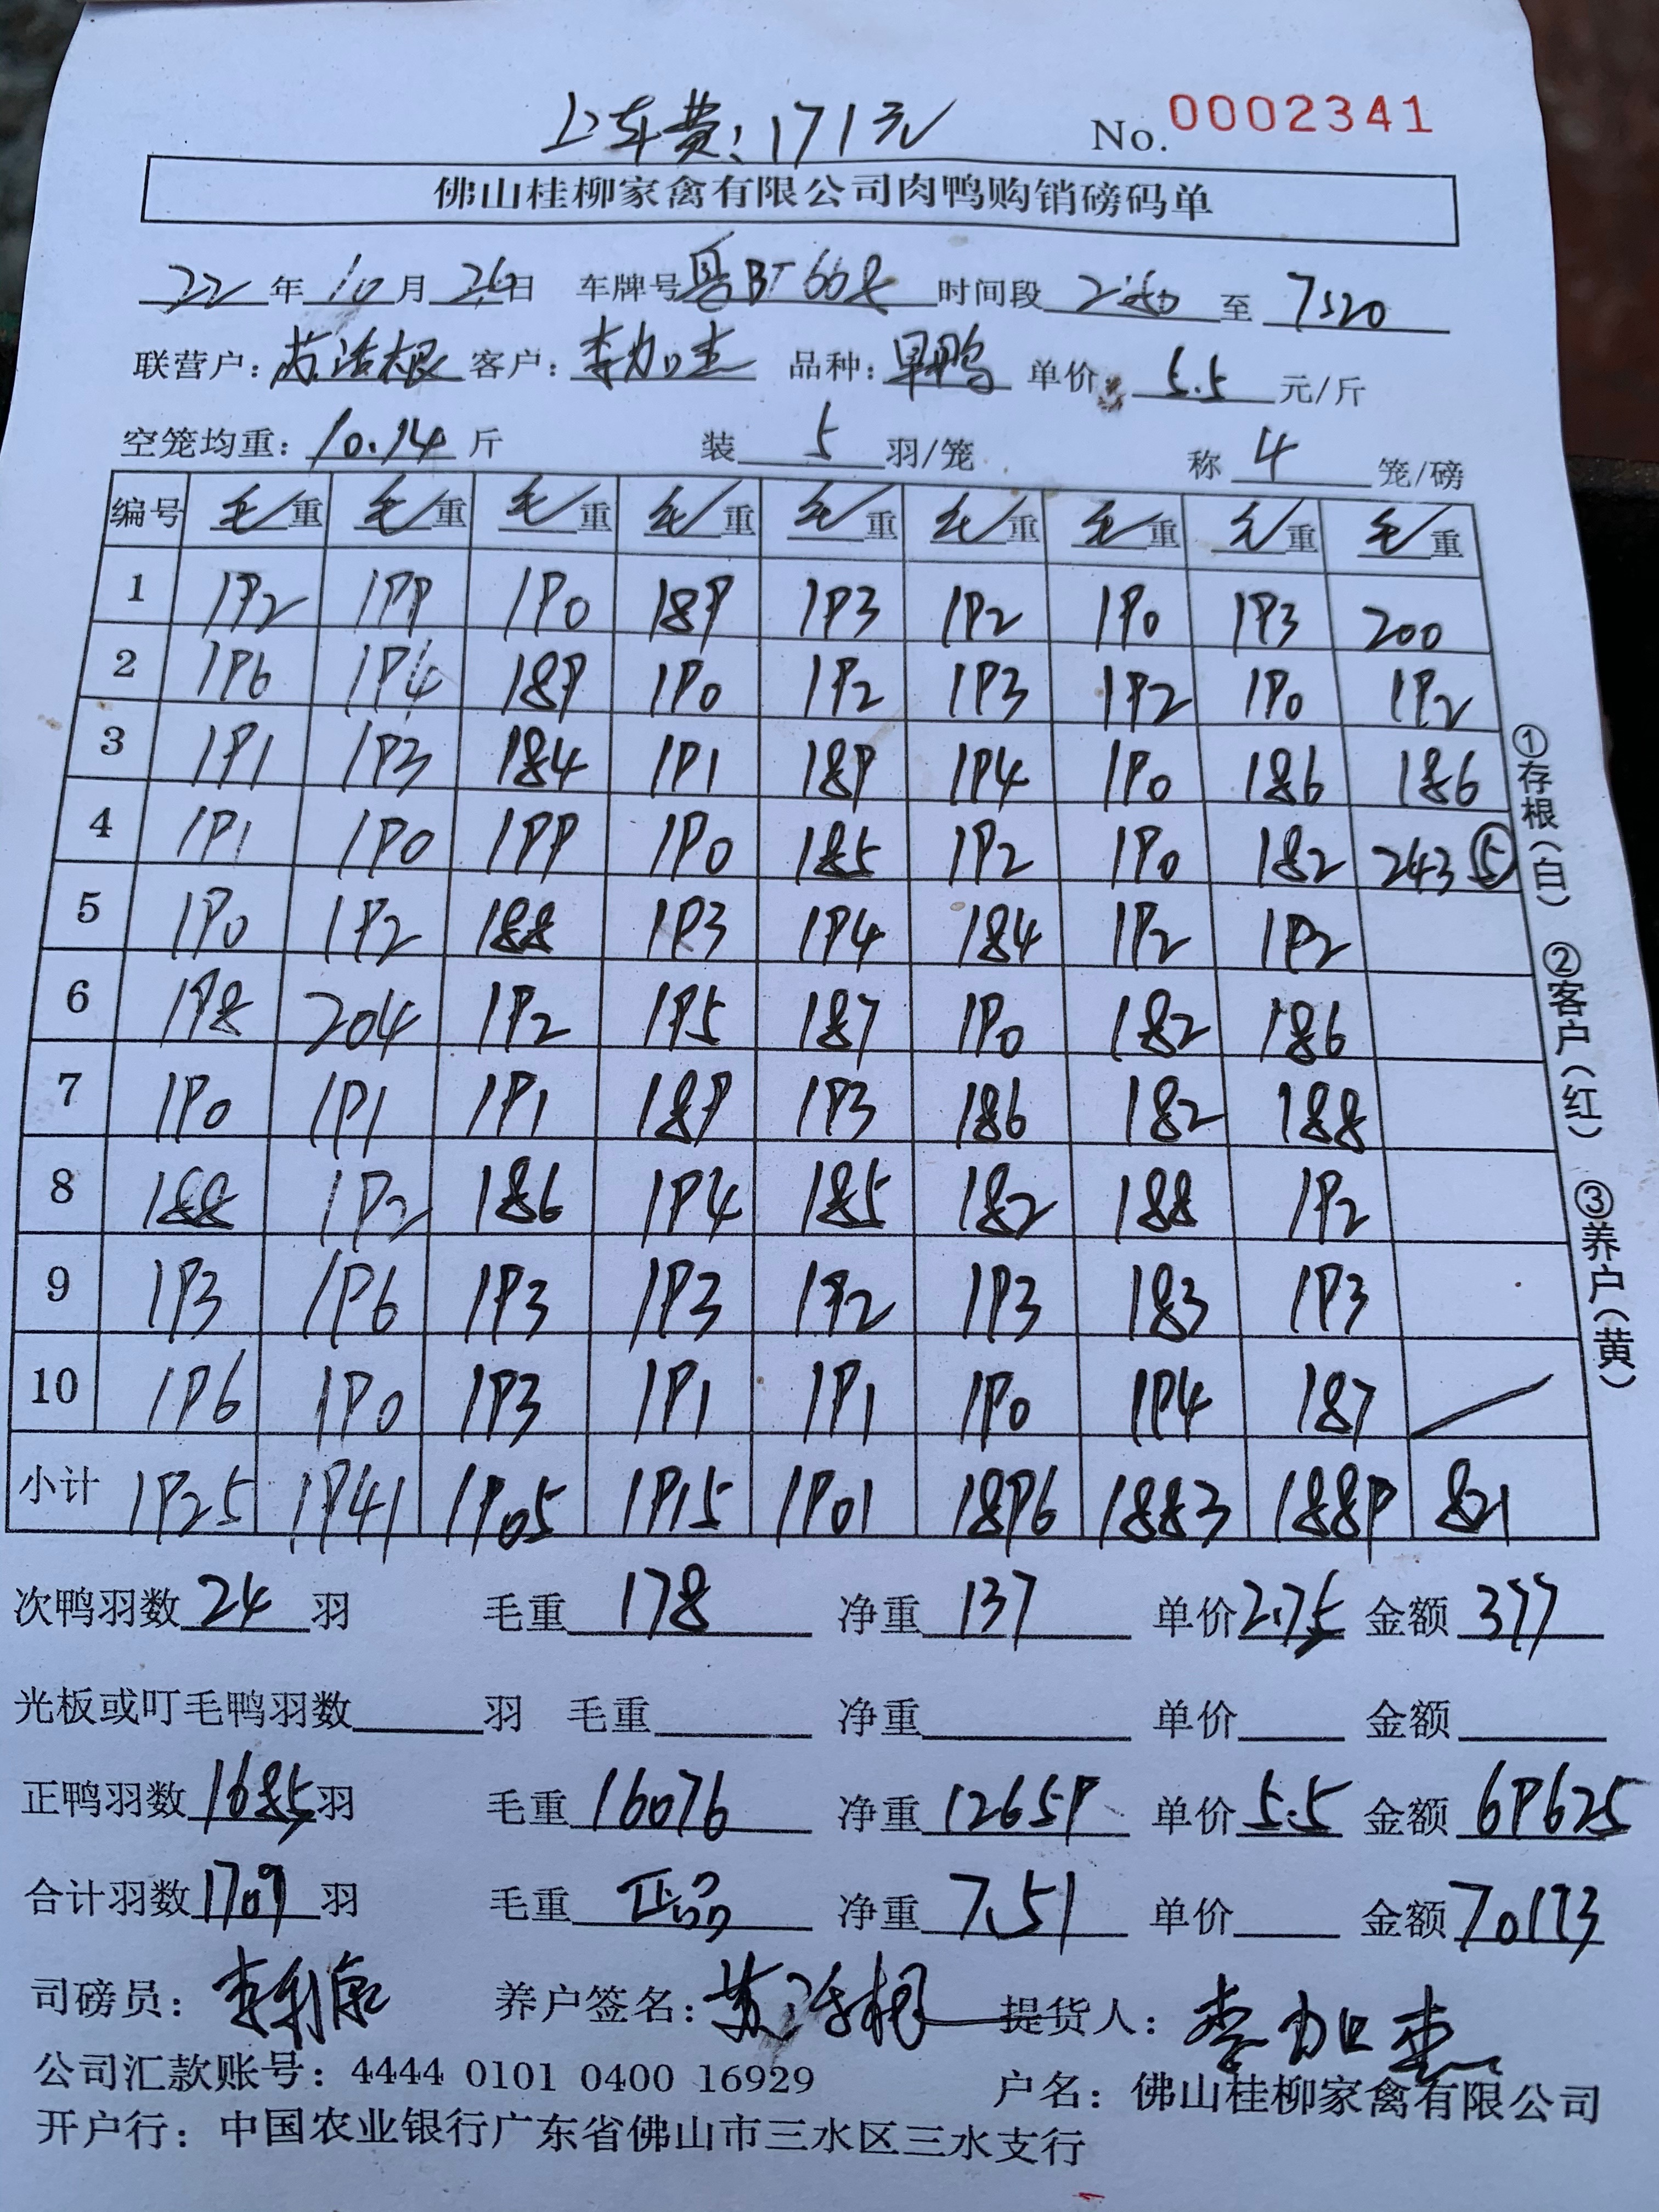 上车费：171元 No. 0002341
佛山桂柳家禽有限公司肉鸭购销磅码单
22年10月26日 车牌号粤BT668 时间段 至 7:20
联营户：苏浩根 客户：李加杰 品种：旱鸭 单价：5.5元/斤
空笼均重：10.14斤 装5羽/笼 称4笼/磅
编号 毛重 毛重 毛重 毛重 毛重 毛重 毛重 毛重 毛重
1 192 199 190 189 193 192 190 193 200
2 196 194 189 190 192 193 192 190 192
3 191 193 184 191 189 194 190 186 186
4 191 190 199 190 185 192 190 182 243⑤
5 190 192 188 193 194 184 192 192
6 198 204 192 195 187 190 182 186
7 190 191 191 189 193 186 182 188
8 188 192 186 194 185 182 188 192
9 193 196 193 193 192 193 183 193
10 196 190 193 191 191 190 194 187
小计 1925 1941 1905 1915 1901 1896 1883 1889 821
次鸭羽数24羽 毛重178 净重137 单价2.75 金额377
光板或叮毛鸭羽数 羽 毛重 净重 单价 金额
正鸭羽数1685羽 毛重16076 净重12659 单价5.5 金额69625
合计羽数1709羽 毛重正品 净重7.51 单价 金额70173
司磅员： 养户签名：苏浩根 提货人：李加杰
公司汇款账号：4444 0101 0400 16929 户名：佛山桂柳家禽有限公司
开户行：中国农业银行广东省佛山市三水区三水支行
①存根（白） ②客户（红） ③养户（黄）